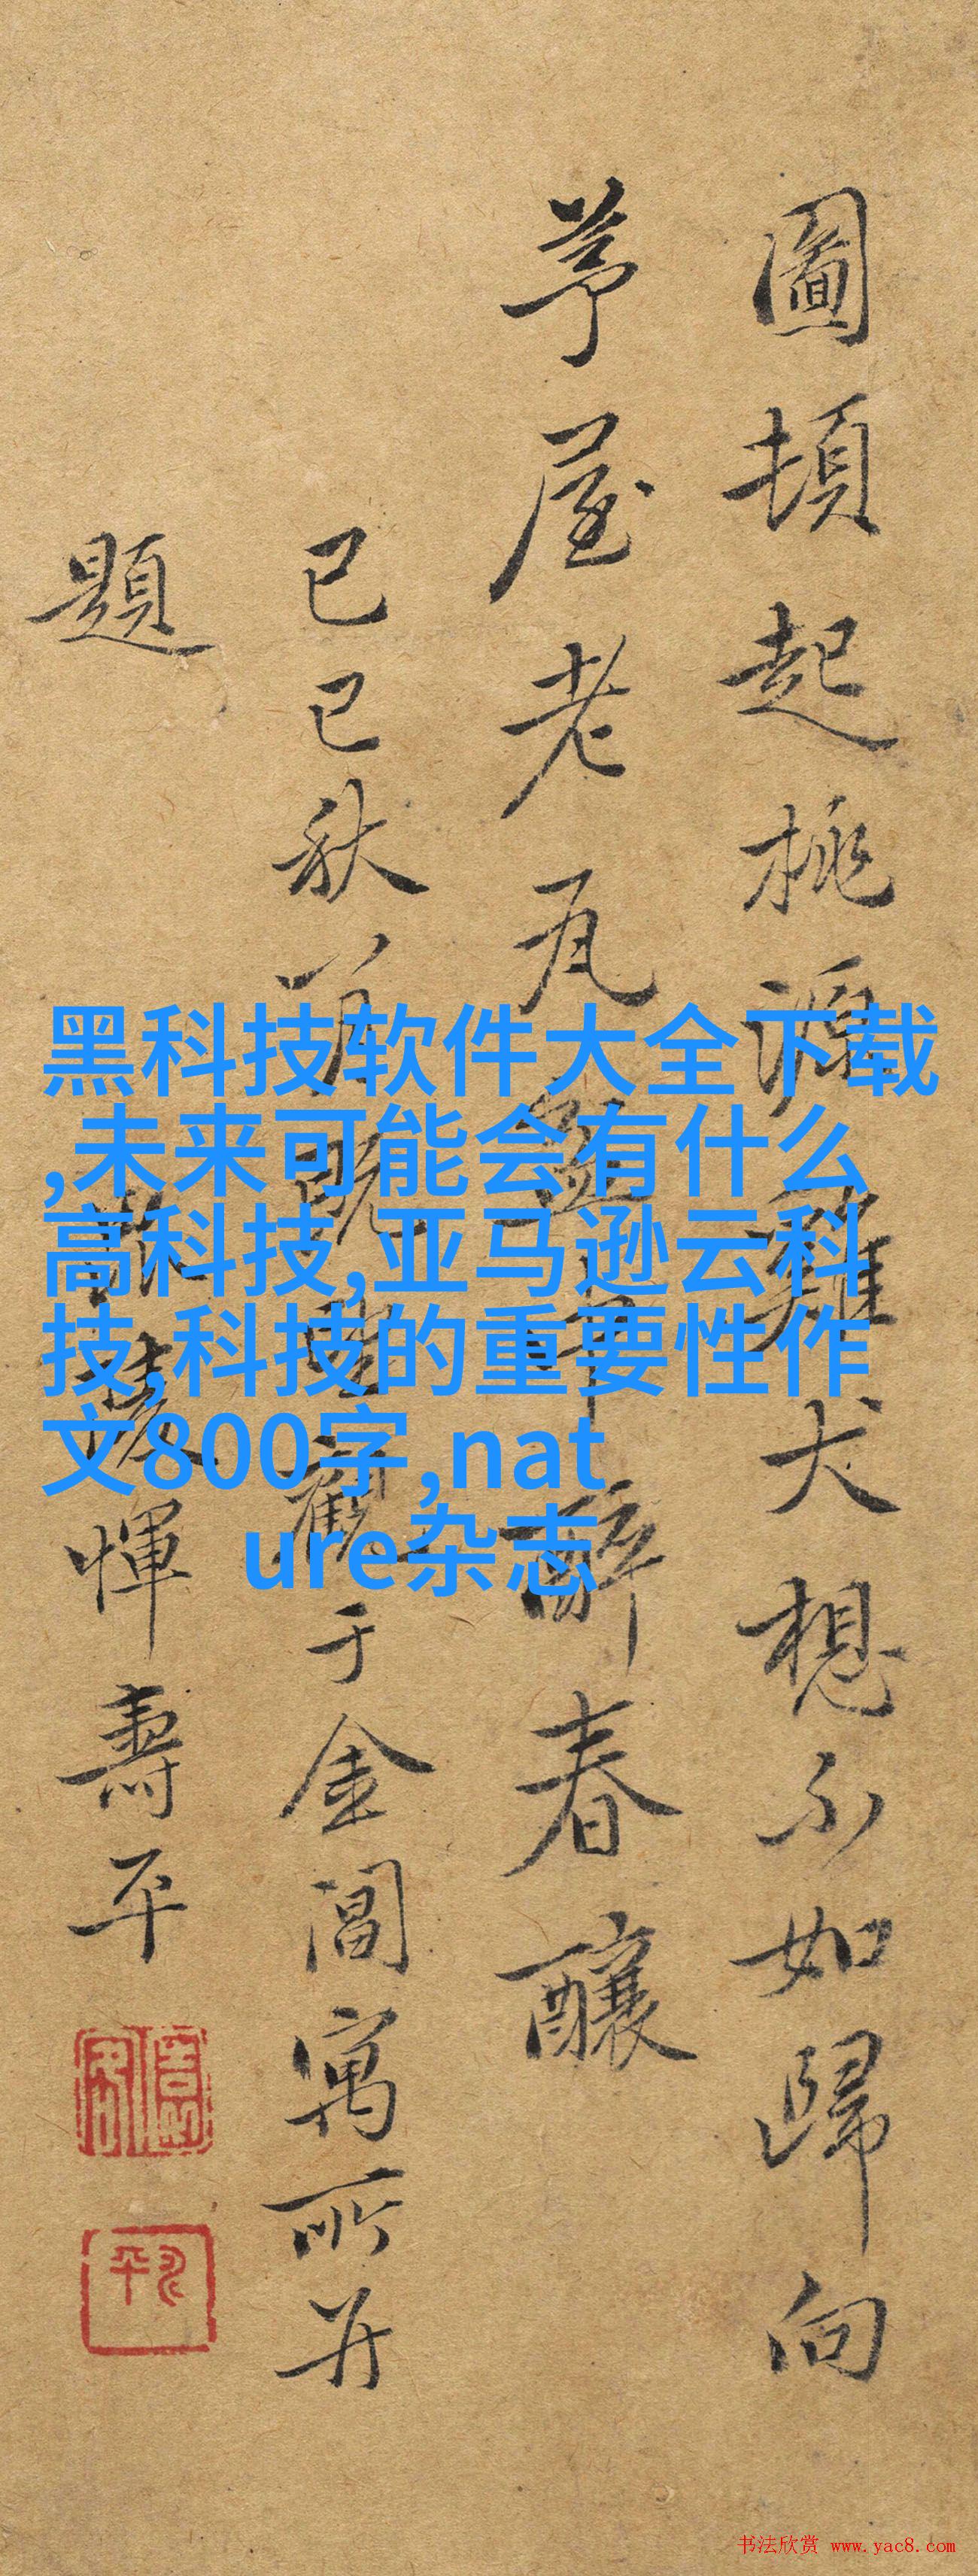 圖頓起桃源雞犬想不如歸向
茅屋老瓦盆中醉春釀
己巳秋八月既望觀于金閶寓所并
題
惲壽平
黑科技软件大全下载
,未来可能会有什么
高科技,亚马逊云科
技,科技的重要性作
文800字,nat
ure杂志
书法欣赏 www.yac8.com